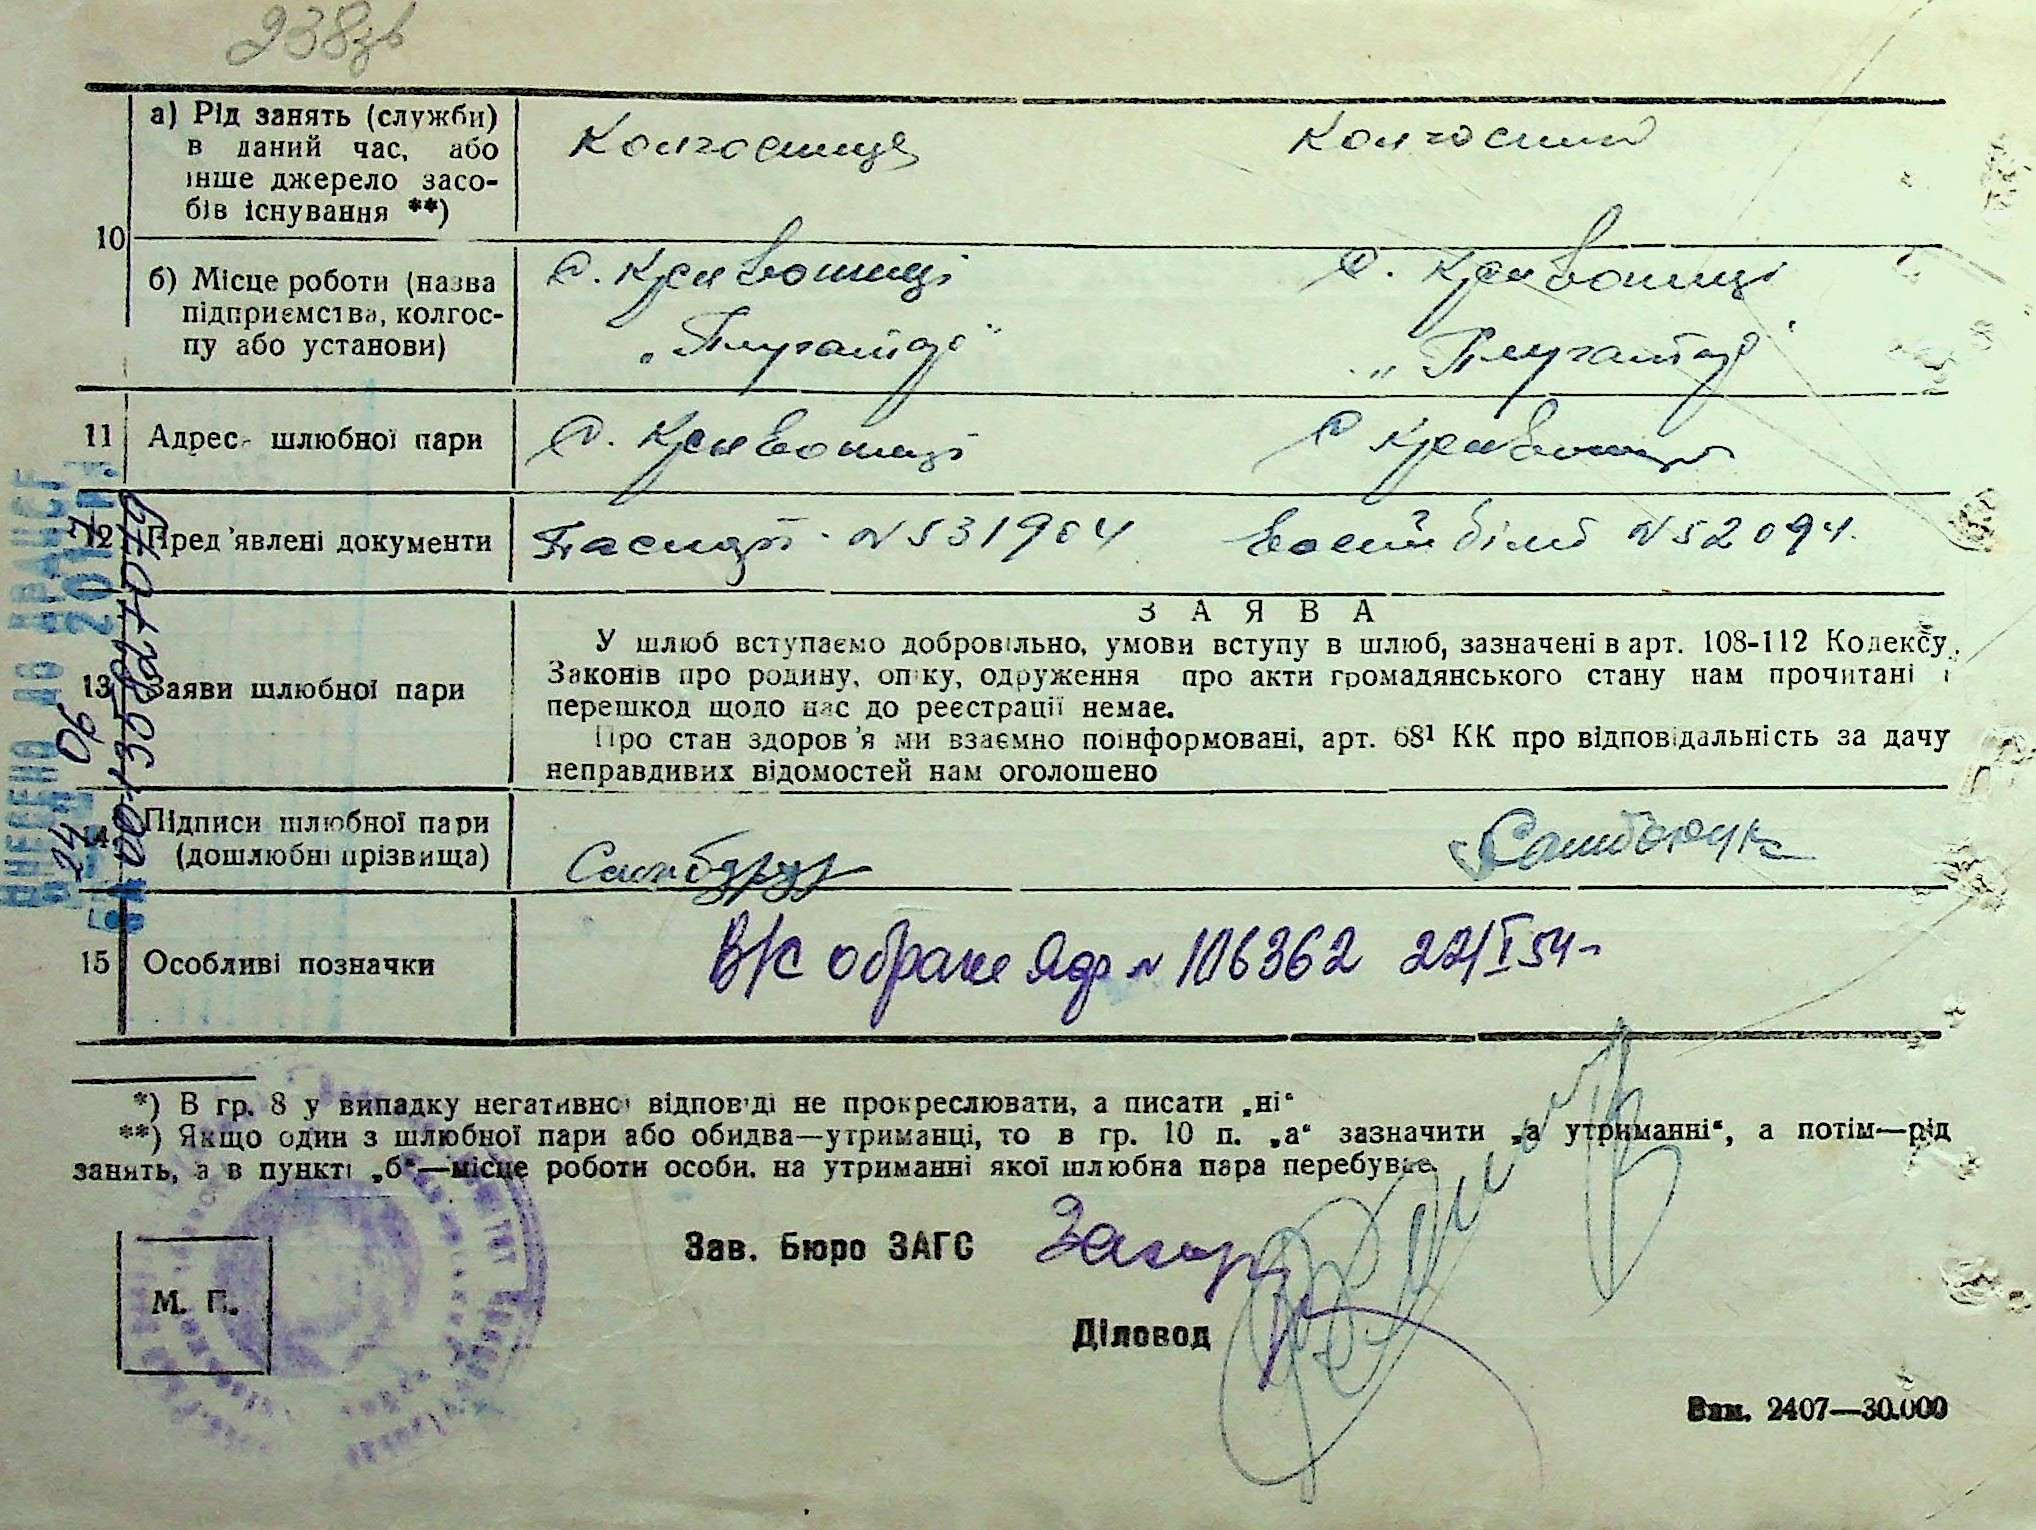 238зв
а) Рід занять (служби)
в даний час, або
інше джерело засо-
бів існування **)
Колгоспниця Колгоспник
10
б) Місце роботи (назва
підприємства, колгос-
пу або установи)
с. Кривошиці с. Кривошиці
11 Адрес шлюбної пари с. Кривошиці с Кривошиці
12 Пред'явлені документи Паспорт N 531904 N 52094.
13 Заяви шлюбної пари
ЗАЯВА
У шлюб вступаємо добровільно, умови вступу в шлюб, зазначені в арт. 108-112 Кодексу
Законів про родину, опіку, одруження про акти громадянського стану нам прочитані і
перешкод щодо нас до реєстрації немає.
Про стан здоров'я ми взаємно поінформовані, арт. 68¹ КК про відповідальність за дачу
неправдивих відомостей нам оголошено
14 Підписи шлюбної пари
(дошлюбні прізвища)
15 Особливі позначки N 106362 22/I 54
*) В гр. 8 у випадку негативної відповіді не прокреслювати, а писати „ні“
**) Якщо один з шлюбної пари або обидва—утриманці, то в гр. 10 п. „а“ зазначити „а утриманні“, а потім—рід
занять, а в пункті „б“—місце роботи особи, на утриманні якої шлюбна пара перебуває.
Зав. Бюро ЗАГС
М. П.
Діловод
Зам. 2407—30.000
ВНЕСЕНО ДО ДРАЦСГ
24 06
00135827079